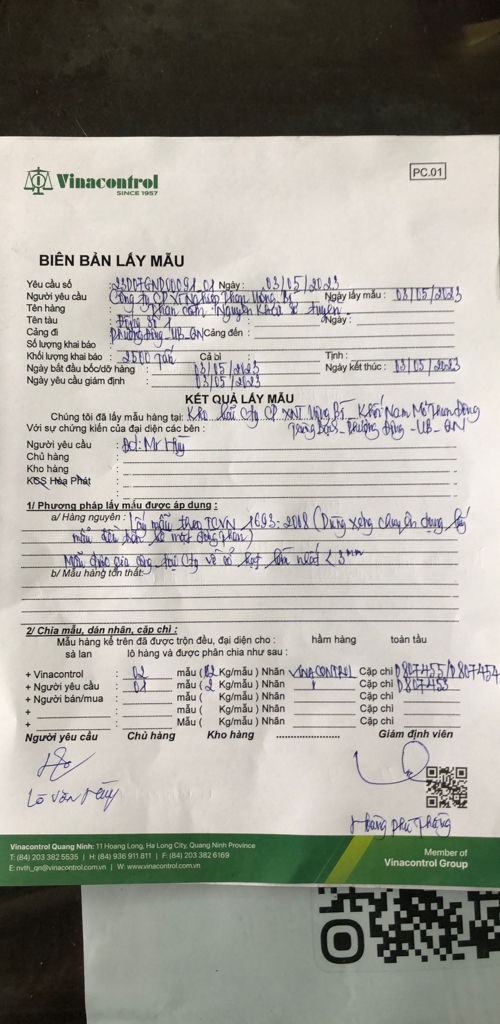 Vinacontrol
SINCE 1957
PC.01
BIÊN BẢN LẤY MẪU
Yêu cầu số : 23D07GND00091_01 Ngày : 03/05/2023
Người yêu cầu : Công ty CP Xí Nghiệp Than Uông Bí Ngày lấy mẫu : 03/05/2023
Tên hàng : Than cám
Tên tàu : Đống số 1 Ngày :
Cảng đi : Phương Đông-UB_QN Cảng đến :
Số lượng khai báo :
Khối lượng khai báo : 2500 tấn Cả bì : Tịnh :
Ngày bắt đầu bốc/dỡ hàng : 03/05/2023 Ngày kết thúc : 03/05/2023
Ngày yêu cầu giám định : 03/05/2023
KẾT QUẢ LẤY MẪU
Chúng tôi đã lấy mẫu hàng tại: Kho bãi Cty CP XNT Uông Bí_ Khối Nam Mỏ Than Đồng
Phương Đông -UB_QN
Với sự chứng kiến của đại diện các bên :
Người yêu cầu : Đd: Mr Hùy
Chủ hàng :
Kho hàng :
KCS Hòa Phát :
1/ Phương pháp lấy mẫu được áp dụng :
a/ Hàng nguyên : Lấy mẫu theo TCVN 1693-2018 (Dùng xẻng chuyên dụng lấy
mẫu
Mẫu được gia công tại Cty về cỡ hạt lớn nhất < 3mm
b/ Mẫu hàng tổn thất:
2/ Chia mẫu, dán nhãn, cặp chì :
Mẫu hàng kể trên đã được trộn đều, đại diện cho : hầm hàng toàn tầu
sà lan lô hàng và được phân chia như sau :
+ Vinacontrol : 02 mẫu ( 2 Kg/mẫu ) Nhãn VINACONTROL Cặp chì D807455/D807454
+ Người yêu cầu : 01 mẫu ( 2 Kg/mẫu ) Nhãn Cặp chì D807453
+ Người bán/mua : mẫu ( Kg/mẫu ) Nhãn Cặp chì
+ : Mẫu ( Kg/mẫu ) Nhãn Cặp chì
+ : Mẫu ( Kg/mẫu ) Nhãn Cặp chì
Người yêu cầu Chủ hàng Kho hàng Giám định viên
Lê Văn Hùy
Hoàng Phú Thắng
Vinacontrol Quang Ninh: 11 Hoang Long, Ha Long City, Quang Ninh Province
T: (84) 203 382 5535 | H: (84) 936 911 811 | F: (84) 203 382 6169
E: nvth_qn@vinacontrol.com.vn | W: www.vinacontrol.com.vn
Member of
Vinacontrol Group